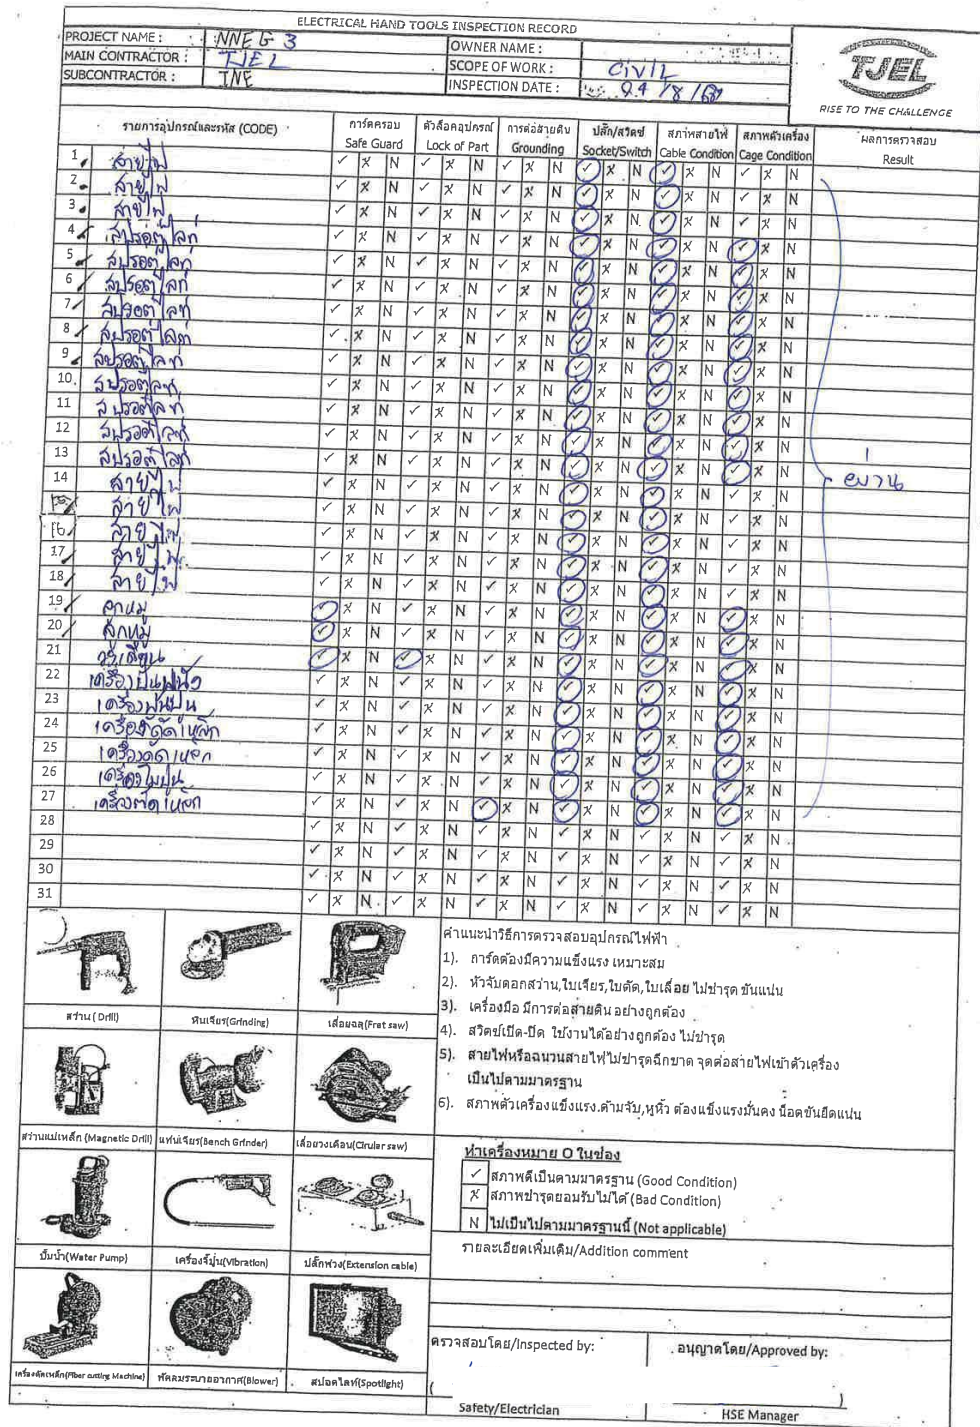 ELECTRICAL HAND TOOLS INSPECTION RECORD
PROJECT NAME : NNEG 3
OWNER NAME :
MAIN CONTRACTOR : TJEL
SCOPE OF WORK : CIVIL
SUBCONTRACTOR : INE
INSPECTION DATE : 04/8/68
TJEL
RISE TO THE CHALLENGE
รายการอุปกรณ์และรหัส (CODE) การ์ดครอบ ตัวล็อคอุปกรณ์ การต่อสายดิน ปลั๊ก/สวิตซ์ สภาพสายไฟ สภาพตัวเครื่อง ผลการตรวจสอบ
Safe Guard Lock of Part Grounding Socket/Switch Cable Condition Cage Condition Result
1 สายไฟ ✓ X N ✓ X N ✓ X N ✓ X N ✓ X N ✓ X N
2 สายไฟ ✓ X N ✓ X N ✓ X N ✓ X N ✓ X N ✓ X N
3 สายไฟ ✓ X N ✓ X N ✓ X N ✓ X N ✓ X N ✓ X N
4 สปรอตไลท์ ✓ X N ✓ X N ✓ X N ✓ X N ✓ X N ✓ X N
5 สปรอตไลท์ ✓ X N ✓ X N ✓ X N ✓ X N ✓ X N ✓ X N
6 สปรอตไลท์ ✓ X N ✓ X N ✓ X N ✓ X N ✓ X N ✓ X N
7 สปรอตไลท์ ✓ X N ✓ X N ✓ X N ✓ X N ✓ X N ✓ X N
8 สปรอตไลท์ ✓ X N ✓ X N ✓ X N ✓ X N ✓ X N ✓ X N
9 สปรอตไลท์ ✓ X N ✓ X N ✓ X N ✓ X N ✓ X N ✓ X N
10 สปรอตไลท์ ✓ X N ✓ X N ✓ X N ✓ X N ✓ X N ✓ X N
11 สปรอตไลท์ ✓ X N ✓ X N ✓ X N ✓ X N ✓ X N ✓ X N
12 สปรอตไลท์ ✓ X N ✓ X N ✓ X N ✓ X N ✓ X N ✓ X N
13 สปรอตไลท์ ✓ X N ✓ X N ✓ X N ✓ X N ✓ X N ✓ X N
14 สายไฟ ✓ X N ✓ X N ✓ X N ✓ X N ✓ X N ✓ X N ผ่าน
15 สายไฟ ✓ X N ✓ X N ✓ X N ✓ X N ✓ X N ✓ X N
16 สายไฟ ✓ X N ✓ X N ✓ X N ✓ X N ✓ X N ✓ X N
17 สายไฟ ✓ X N ✓ X N ✓ X N ✓ X N ✓ X N ✓ X N
18 สายไฟ ✓ X N ✓ X N ✓ X N ✓ X N ✓ X N ✓ X N
19 ลูกหมู ✓ X N ✓ X N ✓ X N ✓ X N ✓ X N ✓ X N
20 ลูกหมู ✓ X N ✓ X N ✓ X N ✓ X N ✓ X N ✓ X N
21 วงเดือน ✓ X N ✓ X N ✓ X N ✓ X N ✓ X N ✓ X N
22 เครื่องปั่นผนัง ✓ X N ✓ X N ✓ X N ✓ X N ✓ X N ✓ X N
23 เครื่องปั่นปูน ✓ X N ✓ X N ✓ X N ✓ X N ✓ X N ✓ X N
24 เครื่องดัดเหล็ก ✓ X N ✓ X N ✓ X N ✓ X N ✓ X N ✓ X N
25 เครื่องดัดเหล็ก ✓ X N ✓ X N ✓ X N ✓ X N ✓ X N ✓ X N
26 เครื่องโม่ปูน ✓ X N ✓ X N ✓ X N ✓ X N ✓ X N ✓ X N
27 เครื่องตัดเหล็ก ✓ X N ✓ X N ✓ X N ✓ X N ✓ X N ✓ X N
28 ✓ X N ✓ X N ✓ X N ✓ X N ✓ X N ✓ X N
29 ✓ X N ✓ X N ✓ X N ✓ X N ✓ X N ✓ X N
30 ✓ X N ✓ X N ✓ X N ✓ X N ✓ X N ✓ X N
31 ✓ X N ✓ X N ✓ X N ✓ X N ✓ X N ✓ X N
สว่าน (Drill) หินเจียร(Grinding) เลื่อยฉลุ(Fret saw)
สว่านแม่เหล็ก (Magnetic Drill) แท่นเจียร(Bench Grinder) เลื่อยวงเดือน(Cirular saw)
ปั๊มน้ำ(Water Pump) เครื่องจี้ปูน(Vibration) ปลั๊กพ่วง(Extension cable)
เครื่องตัดเหล็ก(Fiber cutting Machine) พัดลมระบายอากาศ(Blower) สปอตไลท์(Spotlight)
คำแนะนำวิธีการตรวจสอบอุปกรณ์ไฟฟ้า
1). การ์ดต้องมีความแข็งแรง เหมาะสม
2). หัวจับดอกสว่าน,ใบเจียร,ใบตัด,ใบเลื่อย ไม่ชำรุด ขันแน่น
3). เครื่องมือ มีการต่อสายดิน อย่างถูกต้อง
4). สวิตซ์เปิด-ปิด ใช้งานได้อย่างถูกต้อง ไม่ชำรุด
5). สายไฟหรือฉนวนสายไฟไม่ชำรุดฉีกขาด จุดต่อสายไฟเข้าตัวเครื่อง
เป็นไปตามมาตรฐาน
6). สภาพตัวเครื่องแข็งแรง.ด้ามจับ,หูหิ้ว ต้องแข็งแรงมั่นคง น็อตขันยึดแน่น
ทำเครื่องหมาย O ในช่อง
✓ สภาพดีเป็นตามมาตรฐาน (Good Condition)
X สภาพชำรุดยอมรับไม่ได้ (Bad Condition)
N ไม่เป็นไปตามมาตรฐานนี้ (Not applicable)
รายละเอียดเพิ่มเติม/Addition comment
ตรวจสอบโดย/Inspected by: อนุญาตโดย/Approved by:
( )
Safety/Electrician HSE Manager